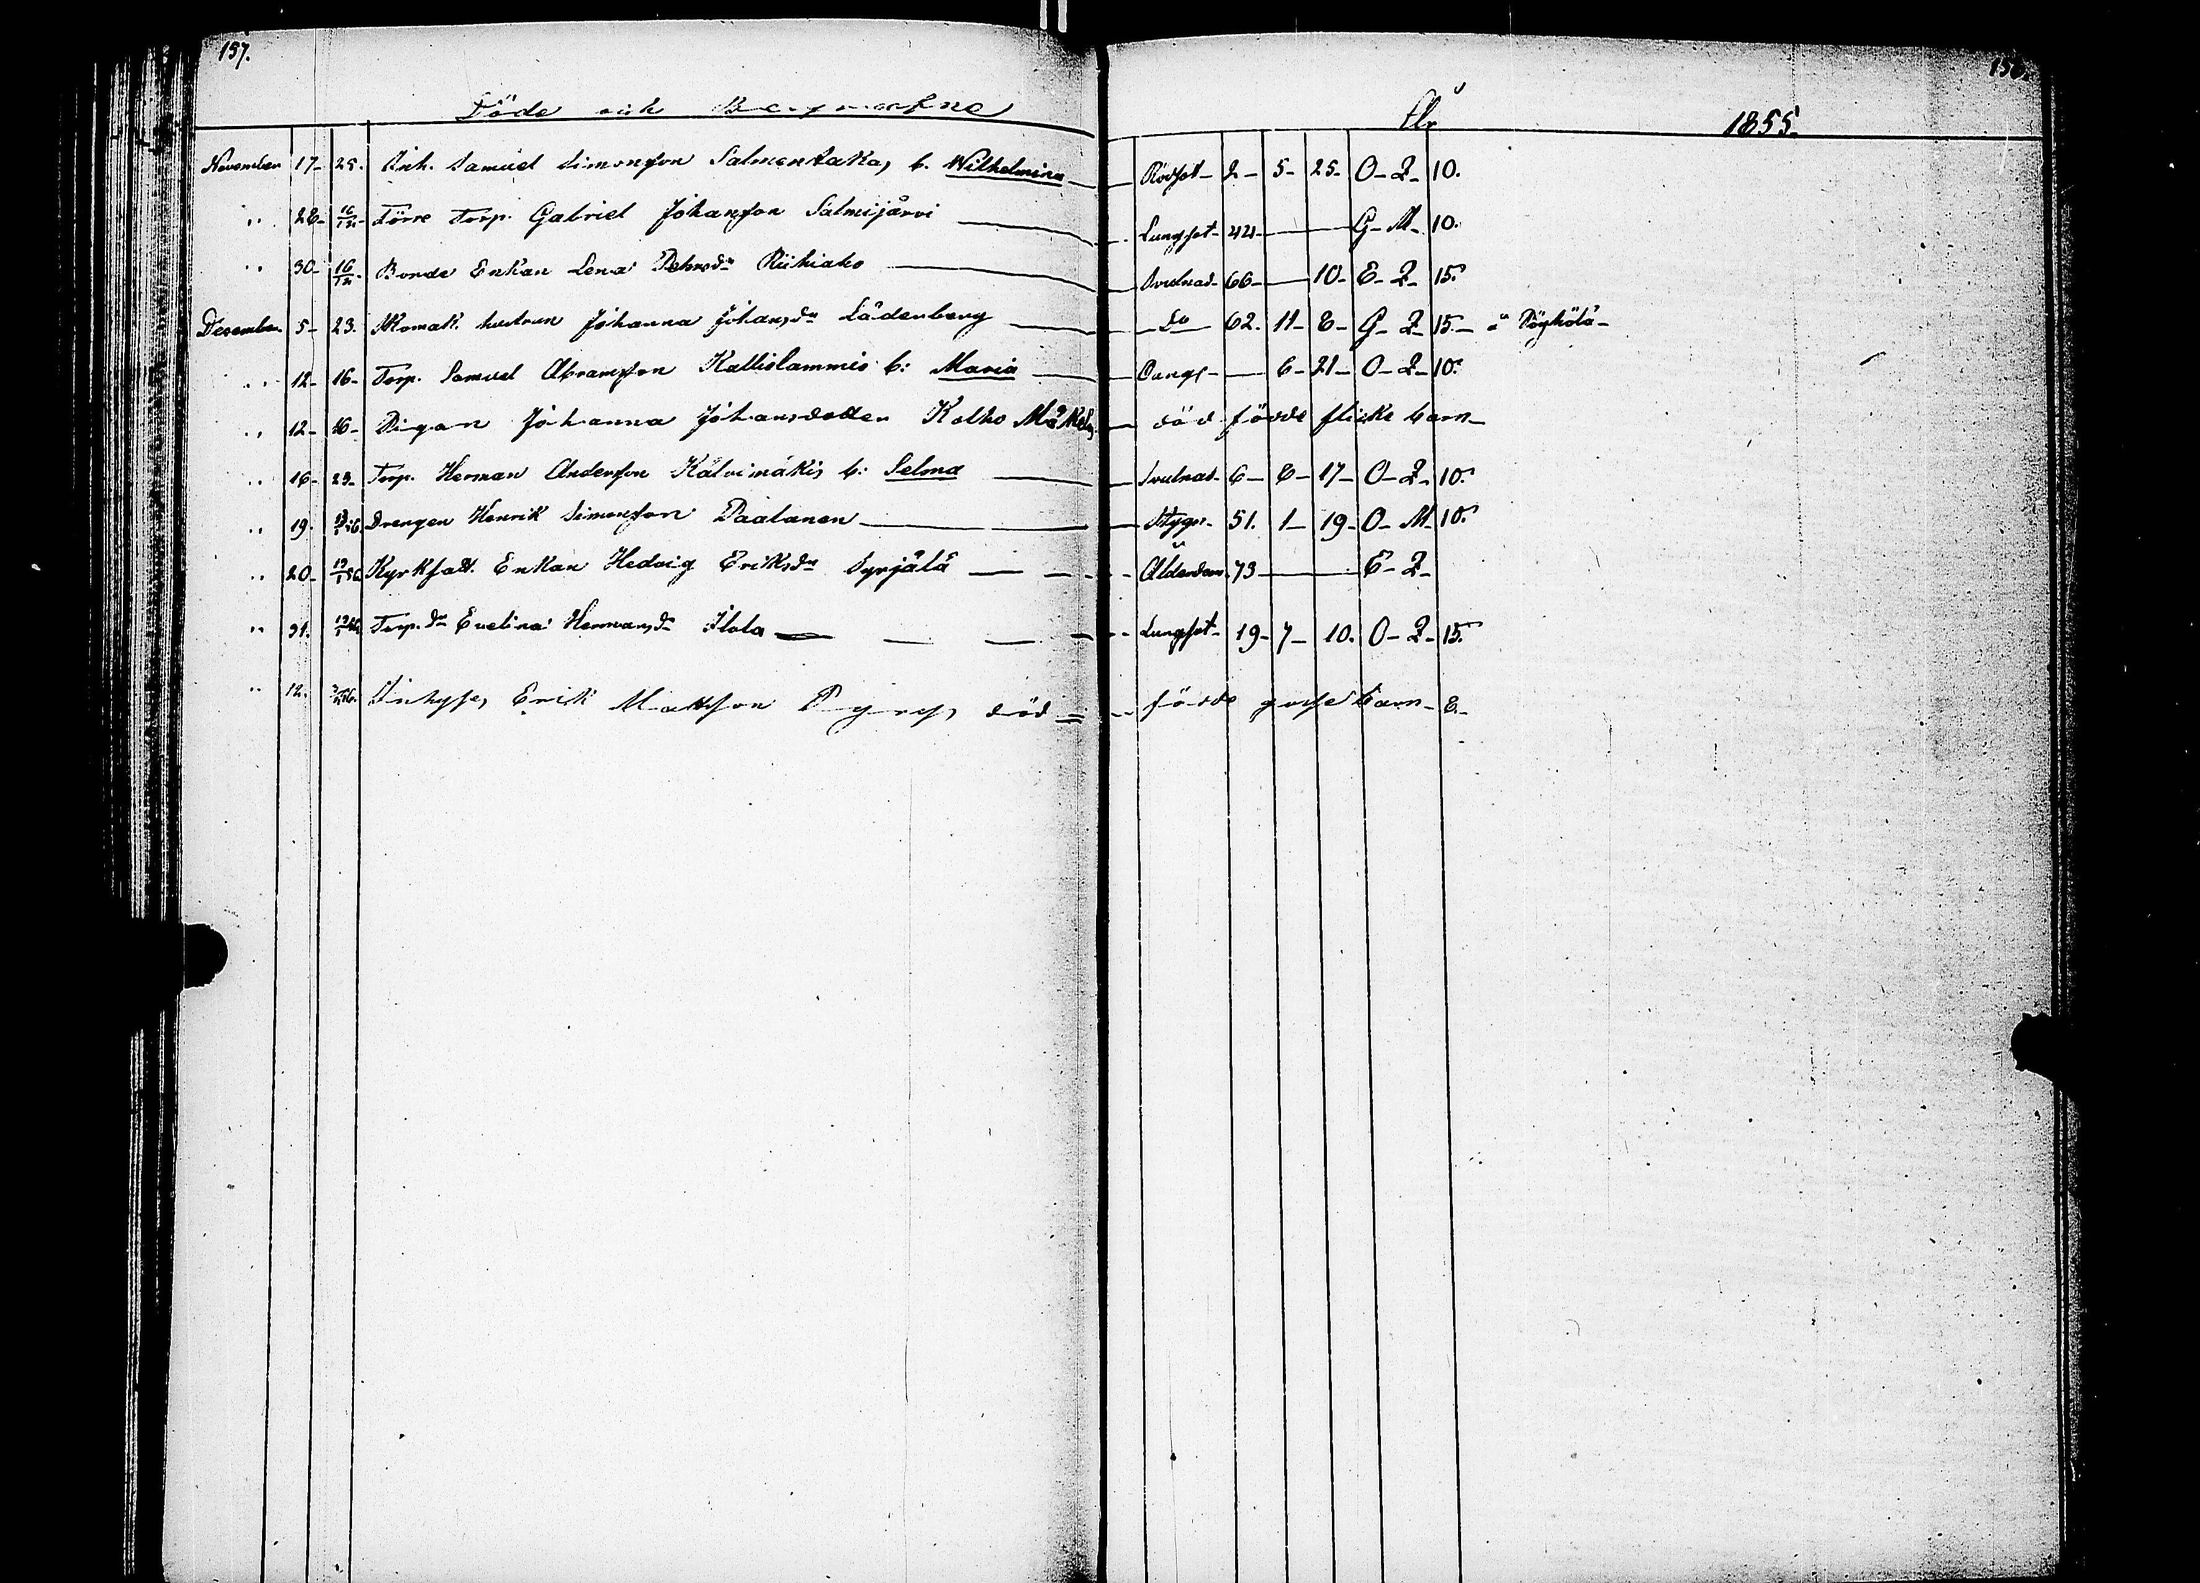 157.
Döde och Begrafne
År 1855.
November 17- 25. Inh. Samuel Simonsson Salmentaka, b. Wilhelmina Rödsot- 2- 5- 25- O- Q- 10.
" 28- 16/12- Förre Torp. Gabriel Johansson Salmijärvi Lungsot- 44- G- M- 10.
" 30- 16/12 Bonde Enkan Lena Pehrsdr Riihiaho Svulnad- 66- 10- E- Q- 15.
December 5- 23. Skomak. hustrun Johanna Johansdr Lådenberg Do 62. 11- 8- G- Q- 15- a
" 12- 16- Torp. Samuel Abramsson Kalliolammis b: Maria 6- 21- O- Q- 10.
" 12- 16- Pigan Johanna Johansdotter Kolho Mäkelä död födde flicke barn
" 16- 23- Torp. Herman Andersson Kälvimäkis b: Selma Svulnad- 6- 8- 17- O- Q- 10.
" 19. Drengen Henrik Simonsson Paalanen Stygn- 51. 1- 19- O- M- 10.
" 20- Kyrkfatt. Enkan Hedvig Eriksdr Syrjälä Ålderdom. 73 E- Q-
" 31. Torp. dr Evelina Hermansdr Ilola Lungsot- 19- 7- 10. O- Q- 15.
" 12. Inhyses Erik Mattsson död födde gosse barn- 8-